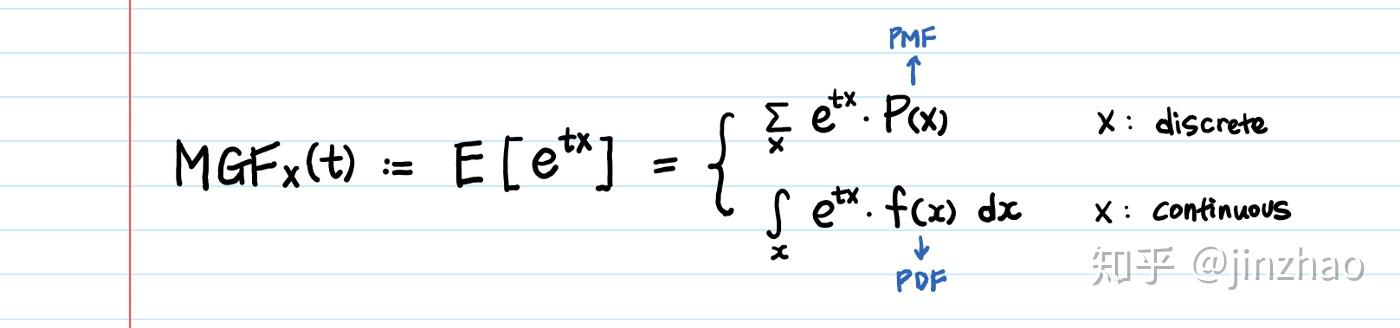 PMF
MGFₓ(t) := E[eᵗˣ] = { Σₓ eᵗˣ · P(x) x : discrete
∫ₓ eᵗˣ · f(x) dx x : continuous
PDF
知乎 @jinzhao